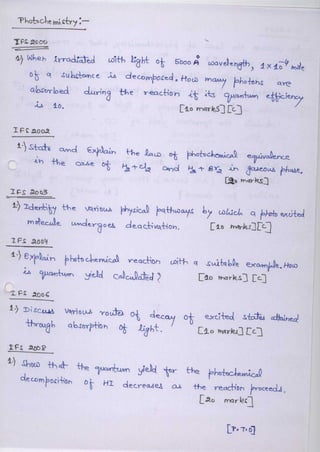 Photochemistry:-
IFS 2000
1) When Irradiated with light of 5000 Å wavelength, 1×10⁻⁴ mole
of a substance is decomposed. How many photons are
absorbed during the reaction if its quantum efficiency
is 10. [10 marks] [C]
IFS 2002
1) State and Explain the law of photochemical equivalence
in the case of H₂ + Cl₂ and H₂ + Br₂ in gaseous phase.
[20 marks]
IFS 2003
1) Identify the various physical pathways by which a photo excited
molecule undergoes deactivation. [10 marks] [C]
IFS 2004
1) Explain photochemical reaction with a suitable example. How
is quantum yield calculated? [10 marks] [C]
IFS 2006
1) Discuss various routes of decay of excited states attained
through absorption of light. [10 marks] [C]
IFS 2008
1) Show that the quantum yield for the photochemical
decomposition of HI decreases as the reaction proceeds.
[20 marks]
[P.T.O]